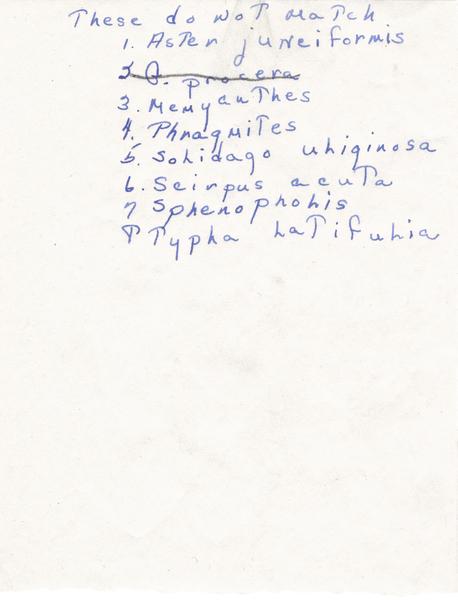 These do not match
1. Aster junciformis
2. G. procera
3. Menyanthes
4. Phragmites
5. Solidago uliginosa
6. Scirpus acuta
7 Sphenopholis
8 Typha latifulia